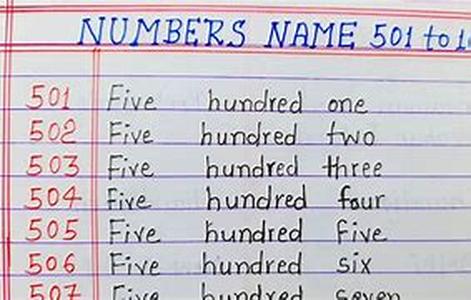 NUMBERS NAME 501 to
501 Five hundred one
502 Five hundred two
503 Five hundred three
504 Five hundred four
505 Five hundred Five
506 Five hundred six
507 Five hundred seven